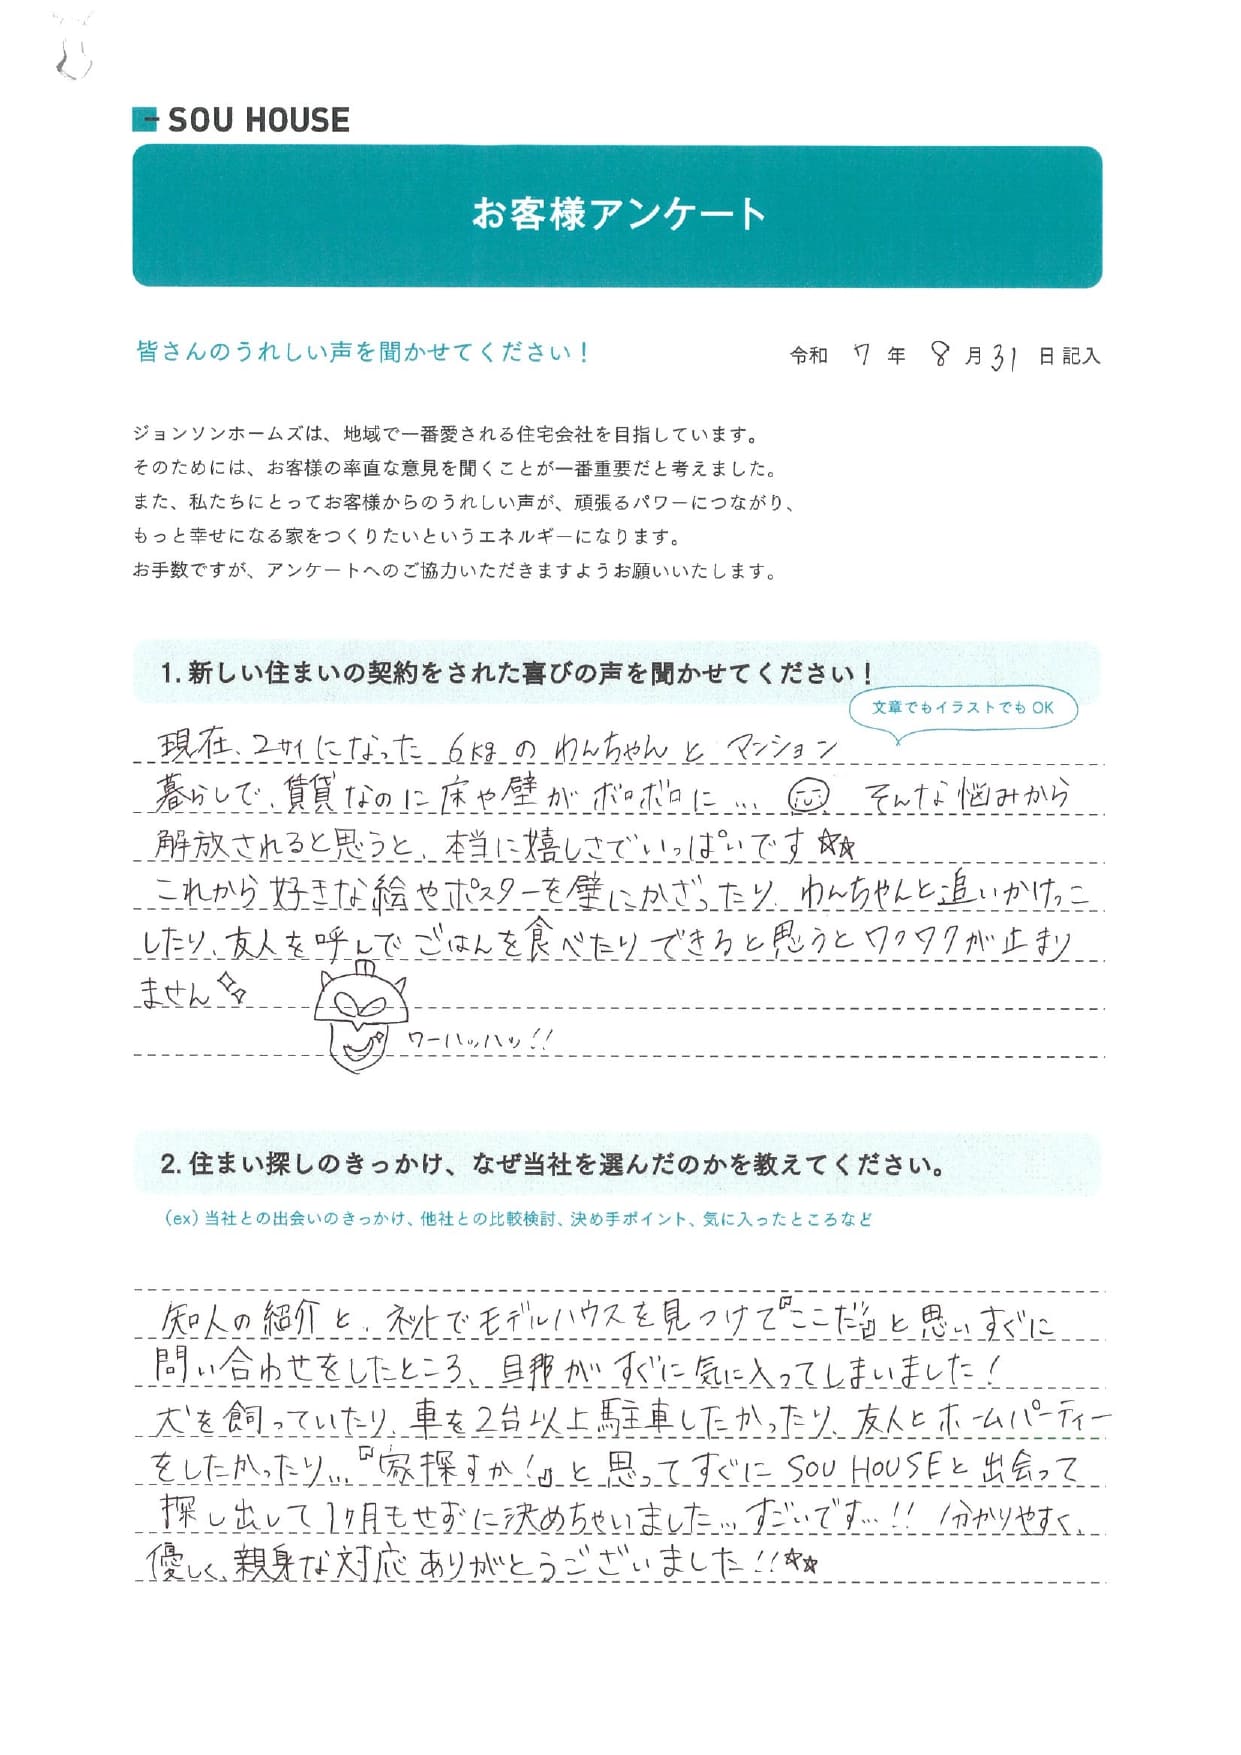 SOU HOUSE
お客様アンケート
皆さんのうれしい声を聞かせてください！
令和 7 年 8 月 31 日記入
ジョンソンホームズは、地域で一番愛される住宅会社を目指しています。
そのためには、お客様の率直な意見を聞くことが一番重要だと考えました。
また、私たちにとってお客様からのうれしい声が、頑張るパワーにつながり、
もっと幸せになる家をつくりたいというエネルギーになります。
お手数ですが、アンケートへのご協力いただきますようお願いいたします。
1. 新しい住まいの契約をされた喜びの声を聞かせてください！
文章でもイラストでもOK
現在、2サイになった 6kg の わんちゃん と マンション
暮らしで、賃貸なのに床や壁がボロボロに… そんな悩みから
解放されると思うと、本当に嬉しさでいっぱいです☆☆
これから好きな絵やポスターを壁にかざったり、わんちゃんと追いかけっこ
したり、友人を呼んでごはんを食べたりできると思うとワクワクが止まり
ません
ワーハッハッ!!
2. 住まい探しのきっかけ、なぜ当社を選んだのかを教えてください。
（ex）当社との出会いのきっかけ、他社との比較検討、決め手ポイント、気に入ったところなど
知人の紹介と、ネットでモデルハウスを見つけて『ここだ』と思いすぐに
問い合わせをしたところ、旦那がすぐに気に入ってしまいました！
犬を飼っていたり、車を2台以上駐車したかったり、友人とホームパーティー
をしたかったり…『家探すか！』と思ってすぐに SOU HOUSEと出会って
探し出して1ヶ月もせずに決めちゃいました…すごいです…!! 分かりやすく、
優しく、親身な対応ありがとうございました!!☆☆